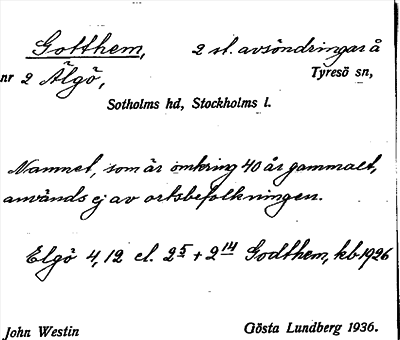 Gotthem, 2 st. avsöndringar å
nr 2 Älgö, Tyresö sn,
Sotholms hd, Stockholms l.
Namnet, som är omkring 40 år gammalt,
används ej av ortsbefolkningen.
Elgö 4,12 el. 2 5 + 2 14 Godthem, kb 1926
John Westin Gösta Lundberg 1936.